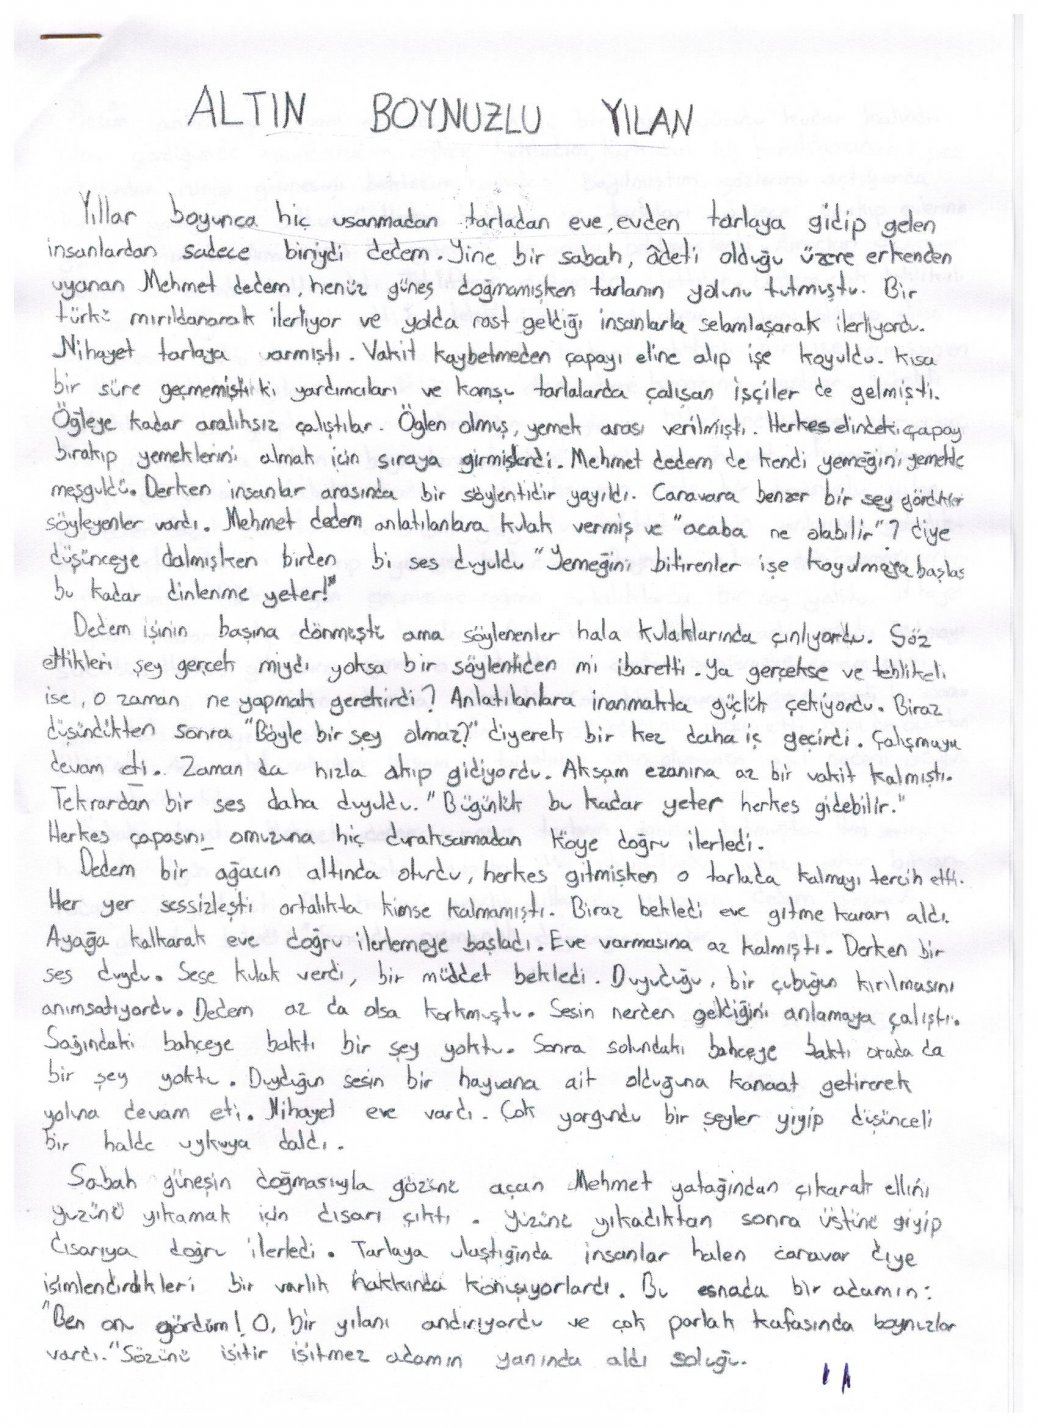 ALTIN BOYNUZLU YILAN
Yıllar boyunca hiç usanmadan tarladan eve, evden tarlaya gidip gelen
insanlardan sadece biriydi dedem. Yine bir sabah, âdeti olduğu üzere erkenden
uyanan Mehmet dedem, henüz güneş doğmamışken tarlanın yolunu tutmuştu. Bir
türkü mırıldanarak ilerliyor ve yolda rast geldiği insanlarla selamlaşarak ilerliyordu.
Nihayet tarlaya varmıştı. Vakit kaybetmeden çapayı eline alıp işe koyuldu. Kısa
bir süre geçmemişti ki yardımcıları ve komşu tarlalarda çalışan işçiler de gelmişti.
Öğleye kadar aralıksız çalıştılar. Öğlen olmuş, yemek arası verilmişti. Herkes elindeki çapayı
bırakıp yemeklerini almak için sıraya girmişlerdi. Mehmet dedem de kendi yemeğini yemekle
meşguldü. Derken insanlar arasında bir söylentidir yayıldı. Canavara benzer bir şey gördükler
söyleyenler vardı. Mehmet dedem anlatılanlara kulak vermiş ve "acaba ne olabilir"? diye
düşünceye dalmışken birden bi ses duyuldu "Yemeğini bitirenler işe koyulmaya başlas
bu kadar dinlenme yeter!"
Dedem işinin başına dönmüştü ama söylenenler hala kulaklarında çınlıyordu. Söz
ettikleri şey gerçek miydi yoksa bir söylentiden mi ibaretti. Ya gerçekse ve tehlikeli
ise, o zaman ne yapmak gerekirdi? Anlatılanlara inanmakta güçlük çekiyordu. Biraz
düşündükten sonra "Böyle bir şey olmaz?" diyerek bir kez daha iç geçirdi. Çalışmaya
devam eti. Zaman da hızla akıp gidiyordu. Akşam ezanına az bir vakit kalmıştı.
Tekrardan bir ses daha duyuldu. "Bügünlük bu kadar yeter herkes gidebilir."
Herkes çapasını omuzuna hiç duraksamadan köye doğru ilerledi.
Dedem bir ağacın altında oturdu, herkes gitmişken o tarlada kalmayı tercih etti.
Her yer sessizleşti ortalıkta kimse kalmamıştı. Biraz bekledi eve gitme kararı aldı.
Ayağa kalkarak eve doğru ilerlemeye başladı. Eve varmasına az kalmıştı. Derken bir
ses duydu. Sese kulak verdi, bir müddet bekledi. Duyduğu, bir çubuğun kırılmasını
anımsatıyordu. Dedem az da olsa korkmuştu. Sesin nerden geldiğini anlamaya çalıştı.
Sağındaki bahçeye baktı bir şey yoktu. Sonra solundaki bahçeye baktı orada da
bir şey yoktu. Duyduğun sesin bir hayvana ait olduğuna kanaat getirerek
yoluna devam eti. Nihayet eve vardı. Çok yorgundu bir şeyler yiyip düşünceli
bir halde uykuya daldı.
Sabah güneşin doğmasıyla gözünü açan Mehmet yatağından çıkarak ellini
yüzünü yıkamak için dısarı çıktı. Yüzünü yıkadıktan sonra üstünü giyip
dısarıya doğru ilerledi. Tarlaya ulaştığında insanlar halen canavar diye
isimlendirdikleri bir varlık hakkında konuşuyorlardı. Bu esnada bir adamın:
"Ben onu gördüm! O, bir yılanı andırıyordu ve çok parlak kafasında boynuzlar
vardı." Sözünü işitir işitmez adamın yanında aldı soluğu.